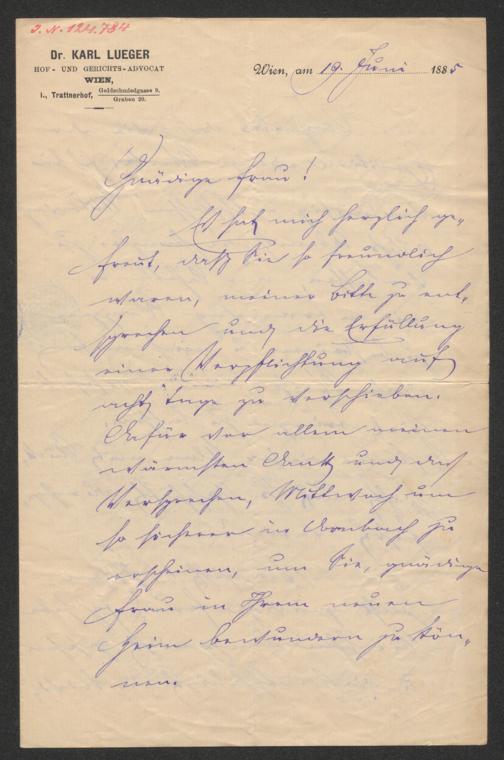 J. N. 124.784
Dr. KARL LUEGER
HOF- UND GERICHTS-ADVOCAT
WIEN,
I., Trattnerhof, Goldschmiedgasse 9.
Graben 29.
Wien, am 19. Juni 1885
Gnädige Frau!
Es hat mich herzlich ge-
freut, daß Sie so freundlich
waren, meiner Bitte zu ent-
sprechen und die Erfüllung
einer Verpflichtung auf
acht Tage zu verschieben.
Dafür vor allem meinen
wärmsten Dank und das
Versprechen, Mittwoch um
so sicherer in Dornbach zu
erscheinen, um Sie, gnädige
Frau in Ihrem neuen
Heim bewundern zu kön-
nen.